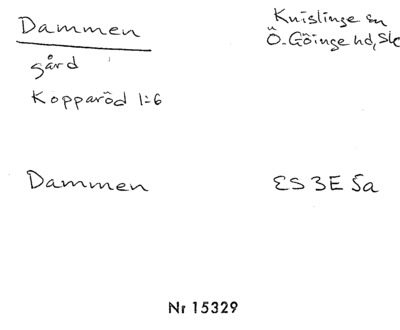 Dammen
Knislinge sn
Ö. Göinge hd, Sk
gård
Kopparöd 1:6
Dammen
ES 3E 5a
Nr 15329